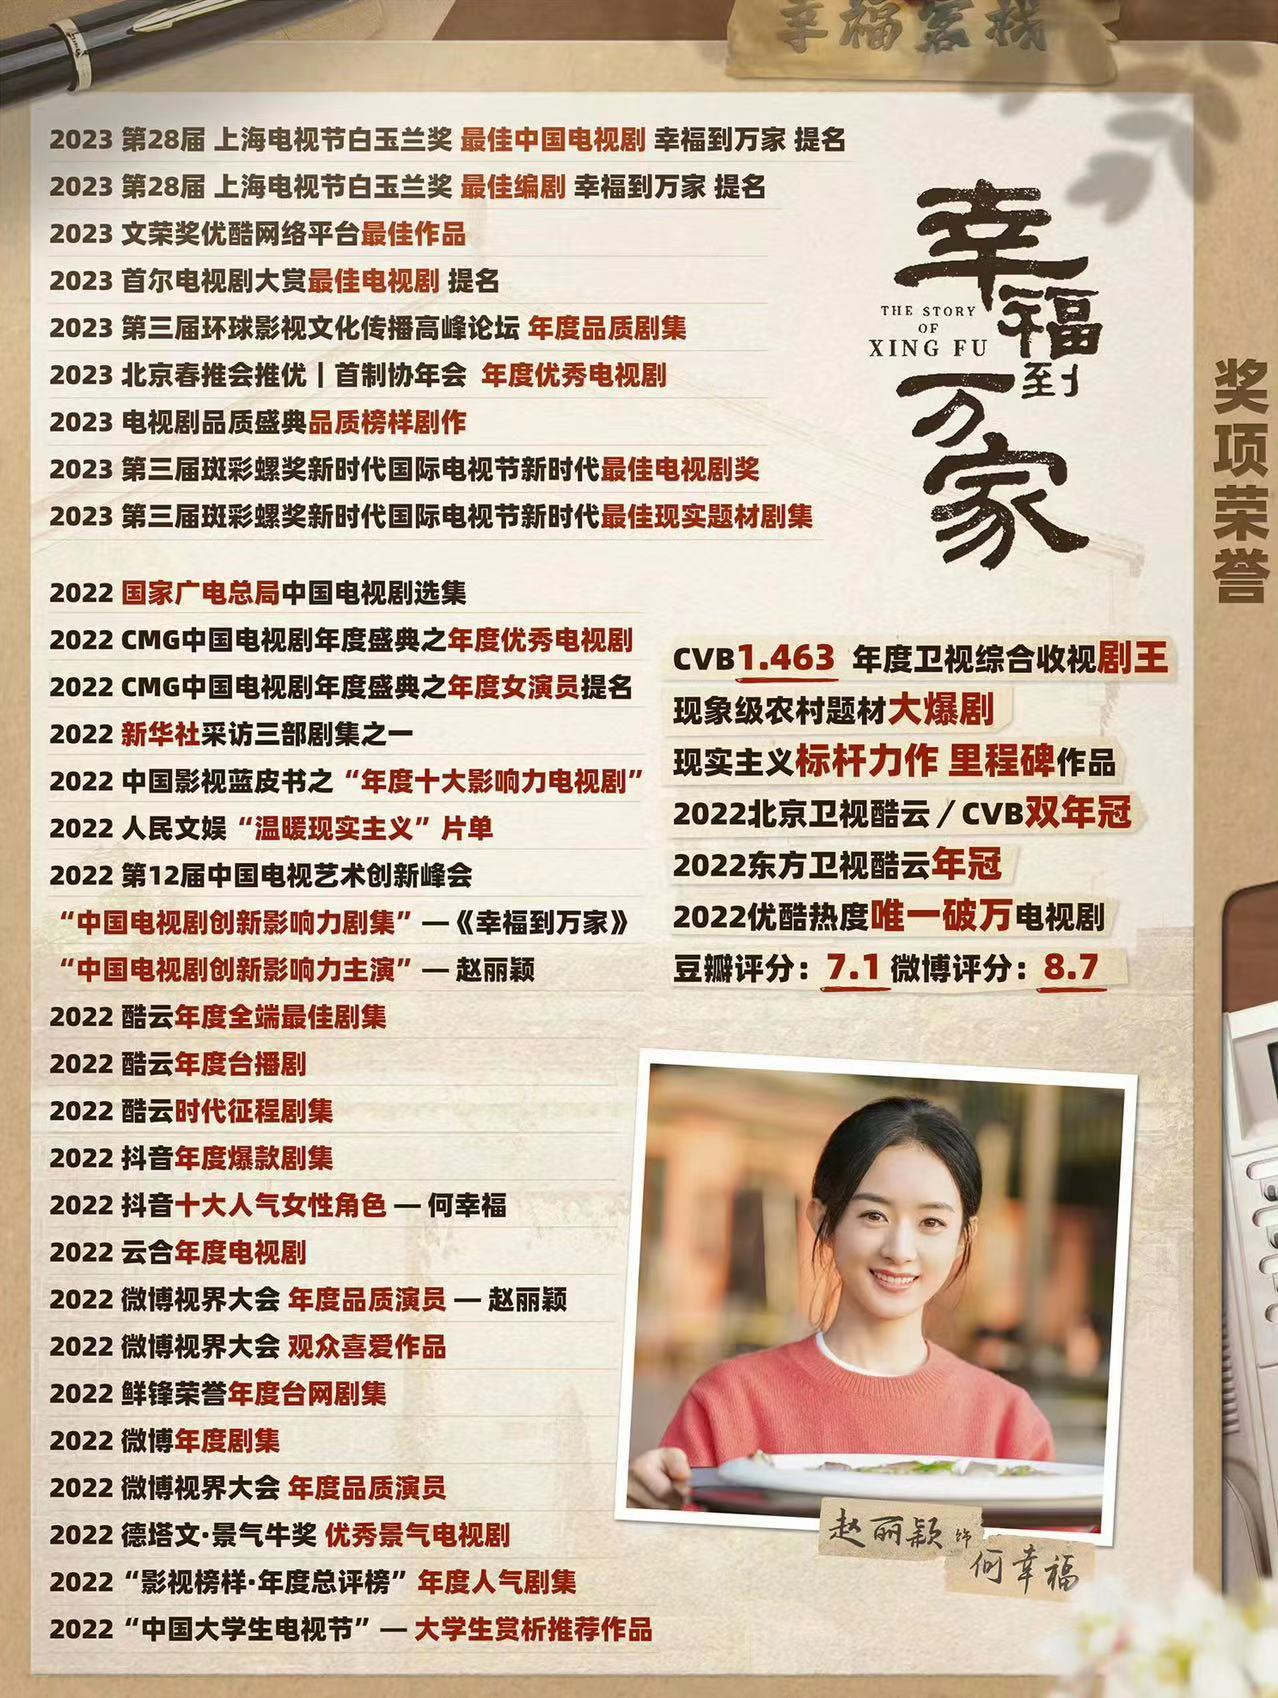 幸福客栈
2023 第28届 上海电视节白玉兰奖 最佳中国电视剧 幸福到万家 提名
2023 第28届 上海电视节白玉兰奖 最佳编剧 幸福到万家 提名
2023 文荣奖优酷网络平台最佳作品
2023 首尔电视剧大赏最佳电视剧 提名
2023 第三届环球影视文化传播高峰论坛 年度品质剧集
2023 北京春推会推优｜首制协年会 年度优秀电视剧
2023 电视剧品质盛典品质榜样剧作
2023 第三届斑彩螺奖新时代国际电视节新时代最佳电视剧奖
2023 第三届斑彩螺奖新时代国际电视节新时代最佳现实题材剧集
幸福到万家
THE STORY
OF
XING FU
奖项荣誉
2022 国家广电总局中国电视剧选集
2022 CMG中国电视剧年度盛典之年度优秀电视剧
2022 CMG中国电视剧年度盛典之年度女演员提名
2022 新华社采访三部剧集之一
2022 中国影视蓝皮书之“年度十大影响力电视剧”
2022 人民文娱“温暖现实主义”片单
2022 第12届中国电视艺术创新峰会
“中国电视剧创新影响力剧集”—《幸福到万家》
“中国电视剧创新影响力主演”— 赵丽颖
2022 酷云年度全端最佳剧集
2022 酷云年度台播剧
2022 酷云时代征程剧集
2022 抖音年度爆款剧集
2022 抖音十大人气女性角色 — 何幸福
2022 云合年度电视剧
2022 微博视界大会 年度品质演员 — 赵丽颖
2022 微博视界大会 观众喜爱作品
2022 鲜锋荣誉年度台网剧集
2022 微博年度剧集
2022 微博视界大会 年度品质演员
2022 德塔文·景气牛奖 优秀景气电视剧
2022“影视榜样·年度总评榜”年度人气剧集
2022“中国大学生电视节”— 大学生赏析推荐作品
CVB1.463 年度卫视综合收视剧王
现象级农村题材大爆剧
现实主义标杆力作 里程碑作品
2022北京卫视酷云／CVB双年冠
2022东方卫视酷云年冠
2022优酷热度唯一破万电视剧
豆瓣评分：7.1 微博评分：8.7
赵丽颖 饰
何幸福